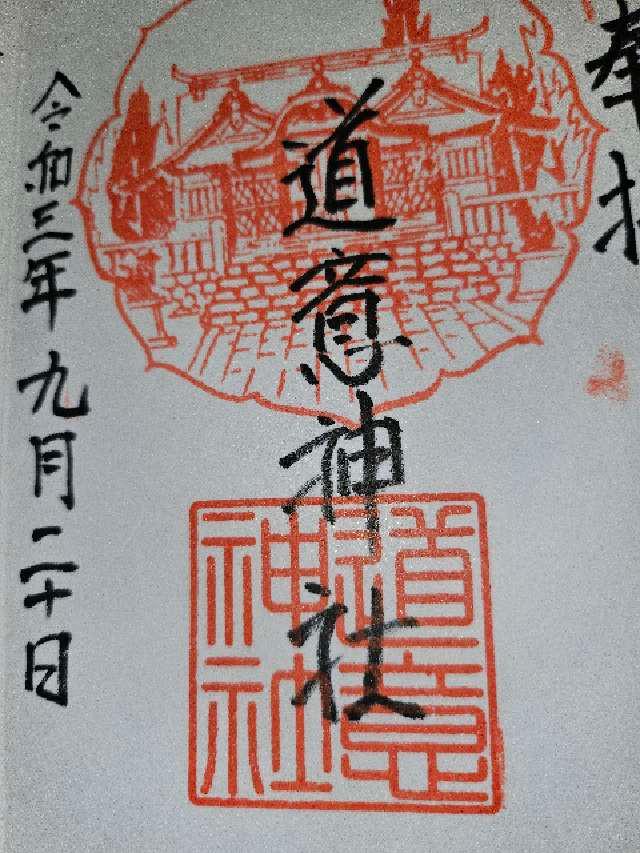 奉拝
道意神社
道意
神社
令和三年九月二十日